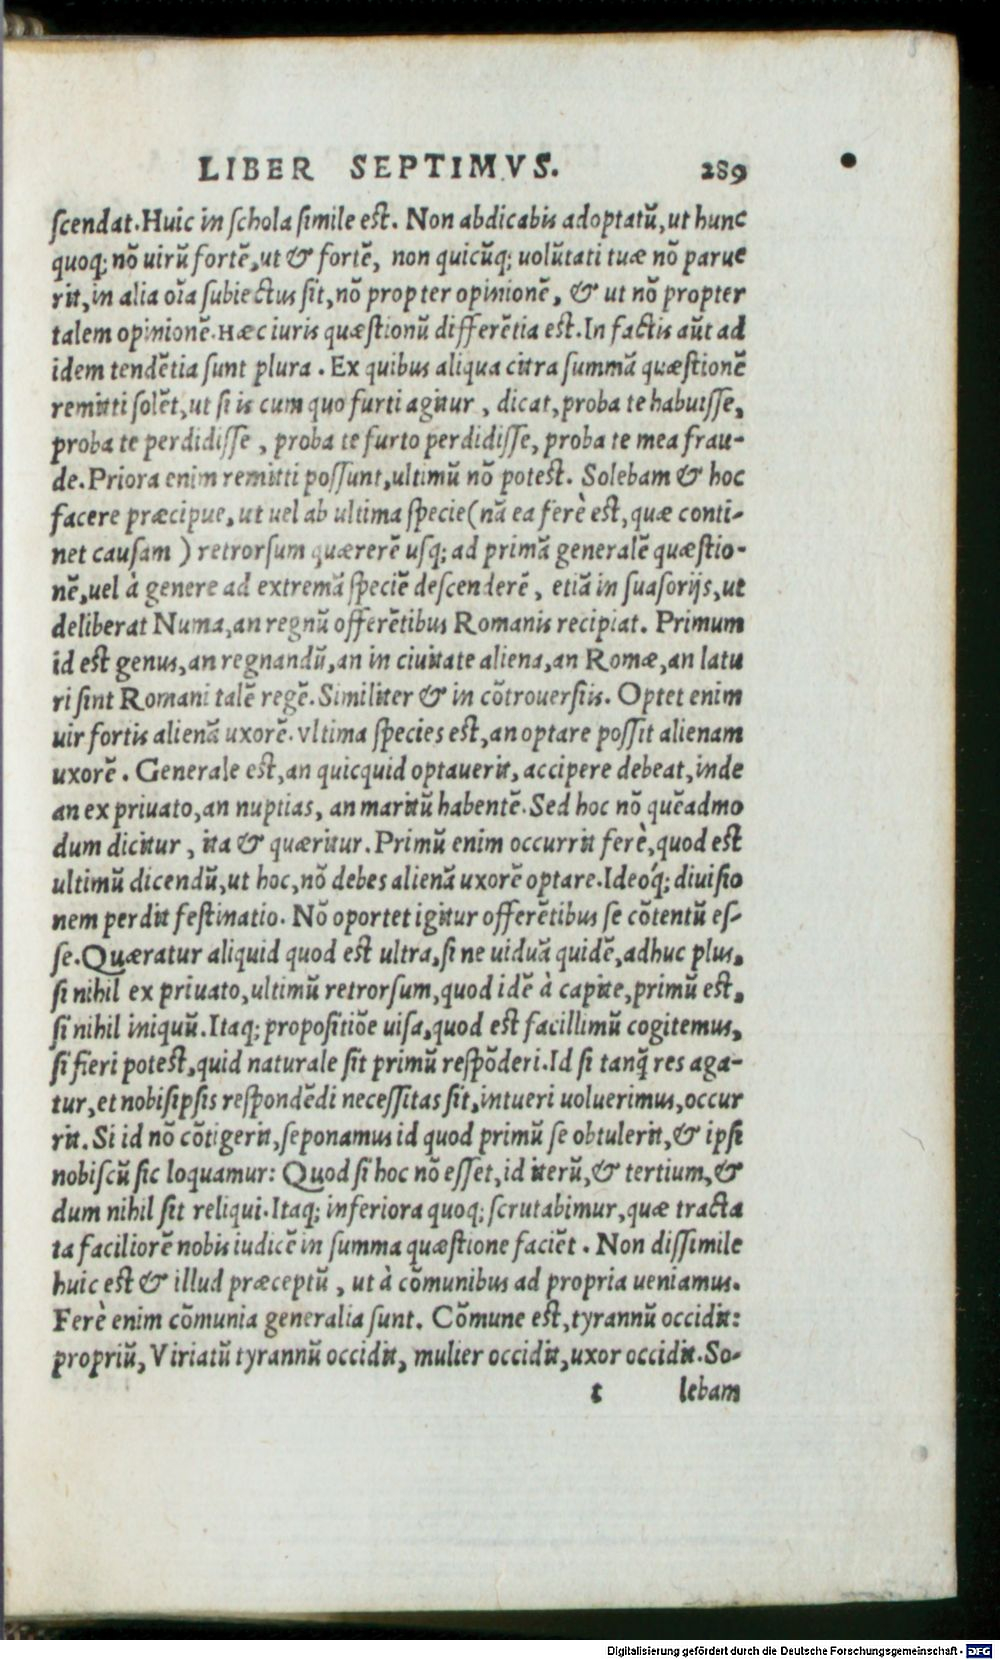 LIBER SEPTIMVS. 289
scendat. Huic in schola simile est. Non abdicabis adoptatũ, ut hunc
quoq; nõ uirũ fortẽ, ut & fortẽ, non quicũq; uolũtati tuæ nõ parue
rit, in alia oĩa subiectus sit, nõ propter opinionẽ, & ut nõ propter
talem opinionẽ. Hæc iuris quæstionũ differẽtia est. In factis aũt ad
idem tendẽtia sunt plura. Ex quibus aliqua citra summã quæstionẽ
remitti solẽt, ut si is cum quo furti agitur, dicat, proba te habuisse,
proba te perdidisse, proba te furto perdidisse, proba te mea frau-
de. Priora enim remitti possunt, ultimũ nõ potest. Solebam & hoc
facere præcipue, ut uel ab ultima specie (nã ea ferè est, quæ conti-
net causam) retrorsum quærerẽ usq; ad primã generalẽ quæstio-
nẽ, uel à genere ad extremã speciẽ descenderẽ, etiã in suasorijs, ut
deliberat Numa, an regnũ offerẽtibus Romanis recipiat. Primum
id est genus, an regnandũ, an in ciuitate aliena, an Romæ, an latu
ri sint Romani talẽ regẽ. Similiter & in cõtrouersiis. Optet enim
uir fortis alienã uxorẽ. Vltima species est, an optare possit alienam
uxorẽ. Generale est, an quicquid optauerit, accipere debeat, inde
an ex priuato, an nuptias, an maritũ habentẽ. Sed hoc nõ quẽadmo
dum dicitur, ita & quæritur. Primũ enim occurrit ferè, quod est
ultimũ dicendũ, ut hoc, nõ debes alienã uxorẽ optare. Ideóq; diuisio
nem perdit festinatio. Nõ oportet igitur offerẽtibus se cõtentũ es-
se. Quæratur aliquid quod est ultra, si ne uiduã quidẽ, adhuc plus,
si nihil ex priuato, ultimũ retrorsum, quod idẽ à capite, primũ est,
si nihil iniquũ. Itaq; propositiõe uisa, quod est facillimũ cogitemus,
si fieri potest, quid naturale sit primũ respõderi. Id si tanq̃ res aga-
tur, et nobis ipsis respondẽdi necessitas sit, intueri uoluerimus, occur
rit. Si id nõ cõtigerit, seponamus id quod primũ se obtulerit, & ipsi
nobiscũ sic loquamur: Quod si hoc nõ esset, id iterũ, & tertium, &
dum nihil sit reliqui. Itaq; inferiora quoq; scrutabimur, quæ tracta
ta faciliorẽ nobis iudicẽ in summa quæstione faciẽt. Non dissimile
huic est & illud præceptũ, ut à cõmunibus ad propria ueniamus.
Ferè enim cõmunia generalia sunt. Cõmune est, tyrannũ occidit:
propriũ, Viriatũ tyrannũ occidit, mulier occidit, uxor occidit. So-
t lebam
Digitalisierung gefördert durch die Deutsche Forschungsgemeinschaft - DFG